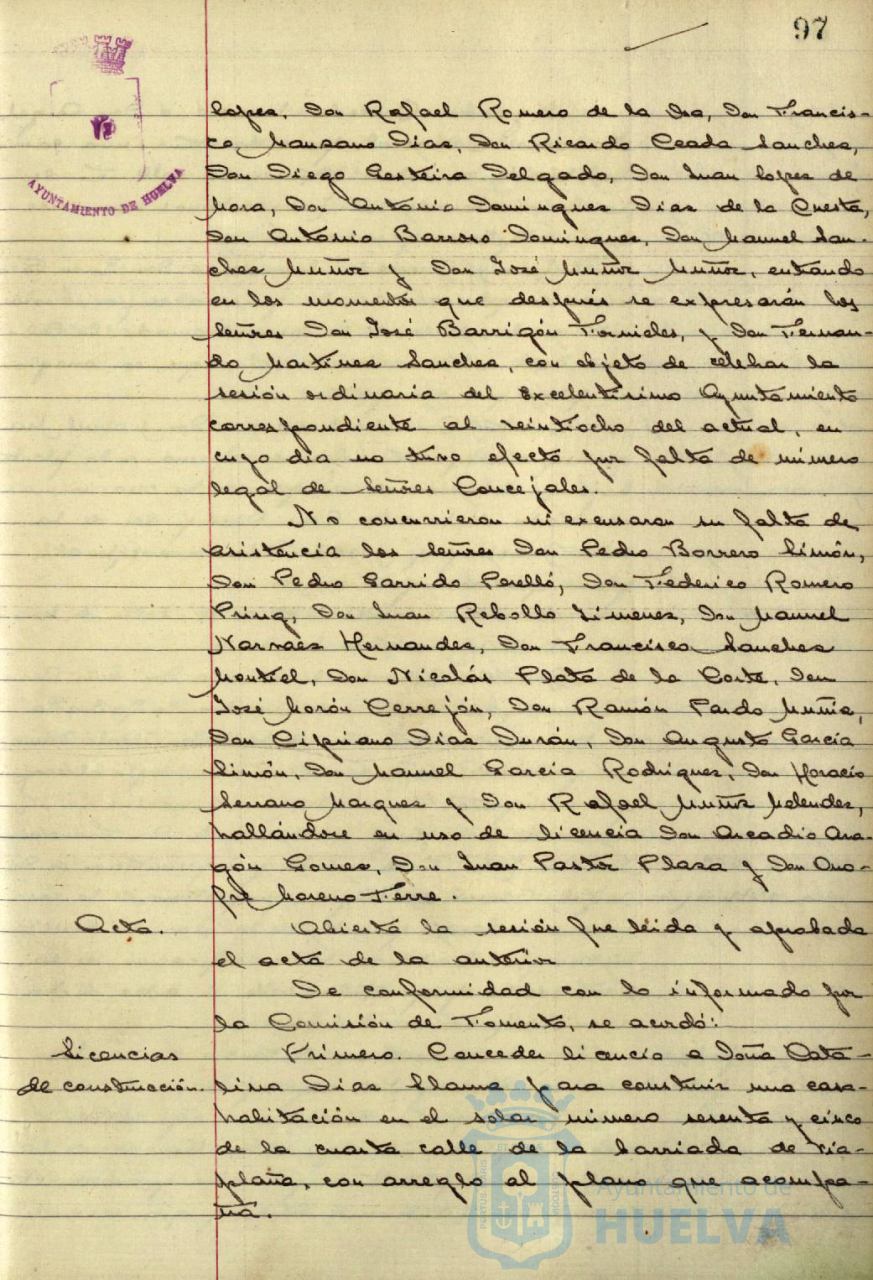 97
AYUNTAMIENTO DE HUELVA
Lopez, Don Rafael Romero de la Osa, Don Francis-
co Manzano Dias, Don Ricardo Ceada Sanchez,
Don Diego Gesteira Delgado, Don Juan Lopez de
Mora, Don Antonio Dominguez Dias de la Cuesta,
Don Antonio Barroso Dominguez, Don Manuel San-
chez Muñoz y Don José Muñoz Muñoz, entrando
en los momentos que después se expresarán los
Señores Don José Barrigón Fornieles, y Don Fernan-
do Martinez Sanchez, con objeto de celebrar la
sesión ordinaria del Excelentisimo Ayuntamiento
correspondiente al veintiocho del actual, en
cuyo dia no tuvo efecto por falta de número
legal de Señores Concejales.
No concurrieron ni excusaron su falta de
asistencia los Señores Don Pedro Borrero Limón,
Don Pedro Garrido Perelló, Don Federico Romero
Don Juan Rebollo Jimenez, Don Manuel
Narvaez Hernandez, Don Francisco Sanchez
Montiel, Don Nicolás Plata de la Corte, Don
José Morón Cerrejón, Don Ramón Pardo
Don Cipriano Dias Durán, Don Augusto García
Limón, Don Manuel García Rodriguez, Don Horacio
Serrano Marquez y Don Rafael Muñoz Melendez,
hallándose en uso de licencia Don Arcadio Ara-
gón Gomez, Don Juan Pastor Plaza y Don Ono-
fre Moreno Ferre.
Acta. Abierta la sesión fue leida y aprobada
el acta de la anterior
De conformidad con lo informado por
la Comisión de Fomento, se acordó:
Licencias Primero. Conceder licencia a Doña Cata-
de construcción. lina Dias Llama para construir una casa-
habitación en el solar número sesenta y cinco
de la cuarta calle de la barriada de Via-
plana, con arreglo al plano que acompa-
ña.
Ayuntamiento de
HUELVA